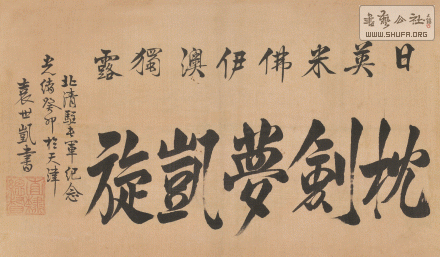 日英米佛伊澳獨露
枕劍夢凱旋
北清駐屯軍紀念
光緒癸卯於天津
袁世凱書
书艺公社
www.SHUFA.org